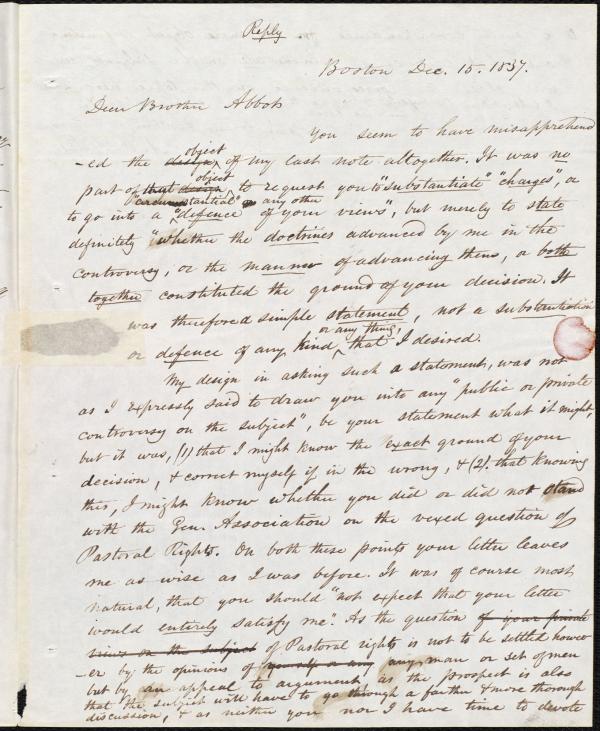 Reply
Boston Dec. 15. 1837.
Dear Brother Abbot
You seem to have misapprehend
-ed the design object of my last note altogether. It was no
part of that design object to request you to "substantiate" "charges", or
to go into a "circumstantial" or any other "defence of your views", but merely to state
definitely "whether the doctrines advanced by me in the
controversy, or the manner of advancing them, or both
together constituted the ground of your decision. It
was therefore a simple statement, not a substantiation
or defence of any kind, or any thing, that I desired.
My design in asking such a statement, was not
as I expressly said to draw you into any "public or private
controversy on the subject", be your statement what it might,
but it was, (1) that I might know the exact ground of your
decision, & correct myself if in the wrong, & (2). that knowing
this, I might know whether you did or did not stand
with the Gen. Association on the vexed question of
Pastoral Rights. On both these points your letter leaves
me as wise as I was before. It was of course most
natural, that you should "not expect that your letter
would entirely satisfy me". As the question of your private
views on the subject of Pastoral rights is not to be settled howev
-er by the opinions of any man or set of men
but by an appeal to argument, as the prospect is also
that the subject will have to go through a farther & more thorough
discussion, & as neither you nor I have time to devote